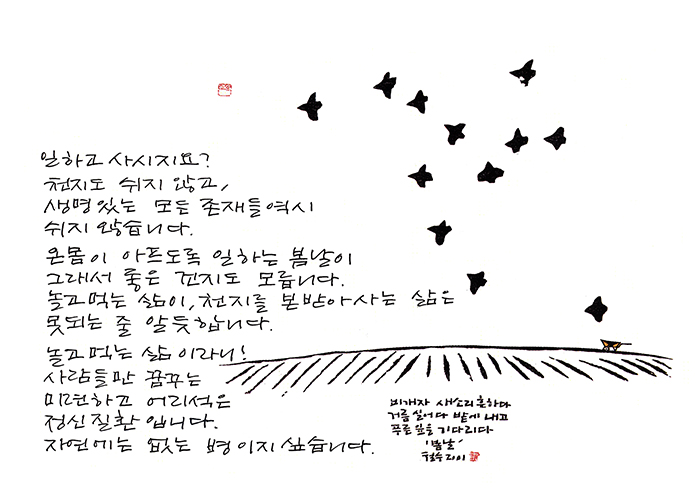 일하고 사시지요?
천지도 쉬지 않고,
생명있는 모든 존재들역시
쉬지 않습니다.
온몸이 아프도록 일하는 봄날이
그래서 좋은 건지도 모릅니다.
놀고먹는 삶이, 천지를 본받아사는 삶은
못되는 줄 알듯합니다.
놀고먹는 삶이라니!
사람들만 꿈꾸는
미련하고 어리석은
정신질환입니다.
자연에는 없는 병이지 싶습니다.
비개자 새소리 운하다
거름 실어다 밭에 내고
푸른 잎을 기다리다
'봄날'
철수 지이